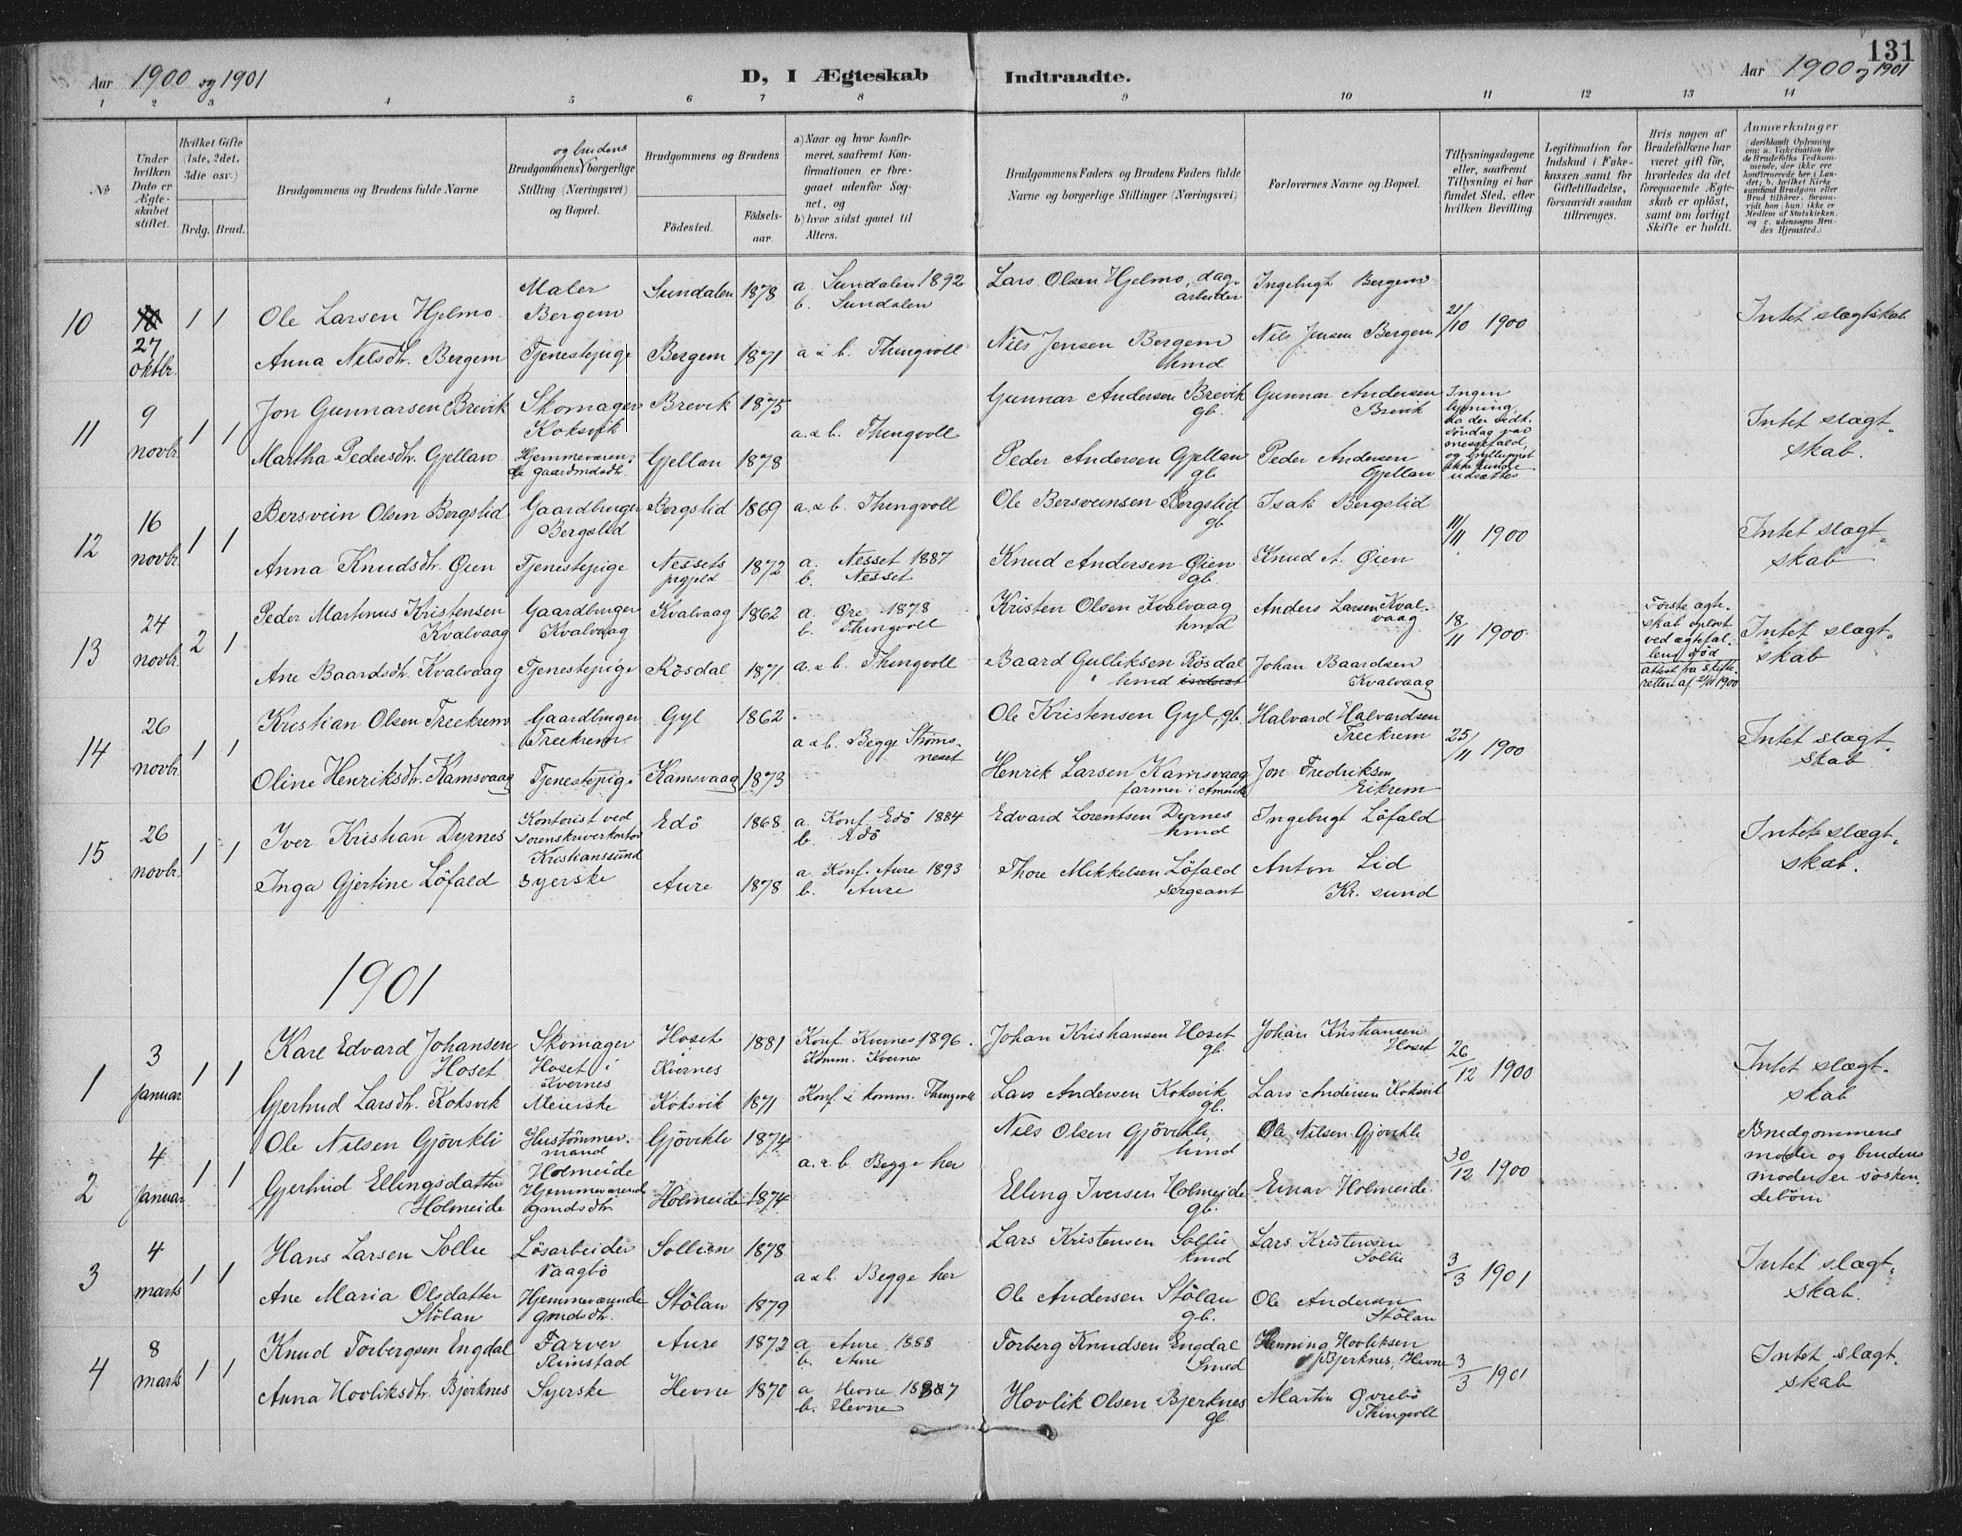 131
Aar 1900 og 1901 D, I Ægteskab Indtraadte. Aar 1900 og 1901
1 2 3 4 5 6 7 8 9 10 11 12 13 14
No
Under hvilken Dato er Ægteskabet stiftet.
Hvilket Gifte (1ste, 2det, 3die osv.)
Brdg. Brud.
Brudgommens og Brudens fulde Navne
og brudens
Brudgommens borgerlige Stilling (Næringsvei) og Bopæl.
Brudgommens og Brudens
Fødested. Fødsels-aar.
a) Naar og hvor konfirmeret, saafremt Konfirmationen er foregaaet udenfor Sognet, og
b) hvor sidst gaaet til Alters.
Brudgommens Faders og Brudens Faders fulde Navne og borgerlige Stillinger (Næringsvei)
Forlovernes Navne og Bopæl.
Tillysningsdagene eller, saafremt Tillysning ei har fundet Sted, efter hvilken Bevilling.
Legitimation for Indskud i Enkekassen samt for Giftetilladelse, forsaavidt saadan tiltrænges.
Hvis nogen af Brudefolkene har været gift før, hvorledes da det foregaaende Ægteskab er opløst, samt om lovligt Skifte er holdt.
Anmærkninger
(deriblandt Oplysning om: a. Vakcination for de Brudefolks Vedkommende, der ikke ere konfirmerede her i Landet; b. hvilket Kirkesamfund Brudgom eller Brud tilhører, forsaavidt han (hun) ikke er Medlem af Statskirken. og c. udensogns Brudes Hjemsted.)
10 27 oktbr. 1 1
Ole Larsen Hjelmo Maler Bergem Sundalen 1878 a. Sundalen 1892 b. Sundalen Lars Olsen Hjelmo, dagarbeider Ingebrigt Bergem 21/10 1900 Intet slægtskab
Anna Nilsdtr. Bergem Tjenestepige Bergem 1871 a & b. Thingvoll Nils Jensen Bergem hmd Nils Jensen Bergem
11 9 novbr. 1 1
Jon Gunnarsen Brevik Skomager Koksvik Brevik 1875 a. & b. Thingvoll Gunnar Andersen Brevik gb. Gunnar Andersen Brevik Ingen lysning, da der sidst. søndag var messefald, og brylluppet ikke kunde udsættes Intet slægtskab.
Martha Pedersdtr. Gjellan Hjemmeværende gaardmdsdtr. Gjellan 1878 Peder Andersen Gjellan gb. Peder Andersen Gjellan
12 16 novbr. 1 1
Bersvein Olsen Bergslid Gaardbruger Bergslid Bergslid 1869 a. & b. Thingvoll Ole Bersveinsen Bergslid gb. Isak Bergslid 11/11 1900 Intet slægtskab
Anna Knudsdtr. Øien Tjenestepige Nessets prgjeld 1872 a. Nesset 1887 b. Nesset Knud Andersen Øien gb. Knud A. Øien
13 24 novbr. 2 1
Peder Martinus Kristensen Kvalvaag Gaardbruger Kvalvaag Kvalvaag 1862 a. Øre 1878 b. Thingvoll Kristen Olsen Kvalvaag hmd Anders Larsen Kvalvaag 18/11 1900 Første ægteskab opløst ved ægtefællens død attest fra skifteretten af 21/11 1900 Intet slægtskab
Ane Baardsdtr. Kvalvaag Tjenestepige Røsdal 1871 a. & b. Thingvoll Baard Gulliksen Røsdal hmd Johan Baardsen Kvalvaag
14 26 novbr. 1 1
Kristian Olsen Treekrem Gaardbruger Treekrem Gyl 1862 a & b. Begge Strømsneset Ole Kristensen Gyl, gb. Halvard Halvardsen Treekrem 25/11 1900 Intet slægtskab
Oline Henriksdtr. Kamsvaag Tjenestepige Kamsvaag 1873 Henrik Larsen Kamsvaag farmer i Amerika Jon Fredriksen Eikrem
15 26 novbr. 1 1
Iver Kristian Dyrnes Kontorist ved sorenskriverkontor Kristianssund Edö 1868 a. Konf. Edö 1884 b. Edö Edvard Lorentsen Dyrnes hmd Ingebrigt Löfald Intet slægtskab.
Inga Gjertine Löfald Syerske Aure 1878 a. Konf. Aure 1893 b. Aure Thore Mikkelsen Löfald sergeant Anton Lid Kr. sund
1901
1 3 januar 1 1
Kare Edvard Johansen Hoset Skomager Hoset i Kvernes Hoset Kvernes 1881 Konf. Kvernes 1896. Komm. Kvernes Johan Kristiansen Hoset gb. Johan Kristiansen Hoset 26/12 1900 Intet slægtskab
Gjertrud Larsdtr. Koksvik Meierske Koksvik 1871 Konf. & komm. Thingvoll Lars Andersen Koksvik gb. Lars Andersen Koksvik
2 4 januar 1 1
Ole Nilsen Gjövikli Hustømmermand Gjövikli 1874 a. & b. Begge her Nils Olsen Gjövikli, hmd Ole Nilsen Gjövikli 30/12 1900 Brudgommens moder og brudens moder er søskendebörn
Gjertrud Ellingsdatter Holmeide Holmeide Hjemmeværende gmdsdtr. Holmeide 1874 Elling Iversen Holmeide gb. Einar Holmeide
3 4 marts 1 1
Hans Larsen Sollie Løsarbeider Vaagbø Sollien 1878 a & b. Begge her Lars Kristensen Sollie hmd Lars Kristensen Sollie 3/3 1901 Intet slægtskab.
Ane Maria Olsdatter Stölan Hjemmeværende gmdsdtr. Stölan 1879 Ole Andersen Stölan gb. Ole Andersen Stölan
4 8 marts 1 1
Knud Torbergsen Engdal Farver Rimstad Aure 1872 a Aure 1888 b. Aure Torberg Knudsen Engdal Smed Henning Hovliksen Bjerknes, Hevne 3/3 1901 Intet slægtskab
Anna Hovliksdtr. Bjerknes Syerske Hevne 1870 a. Hevne 1887 b. Hevne Hovlik Olsen Bjerknes gb. Martin Øvrebö Thingvoll